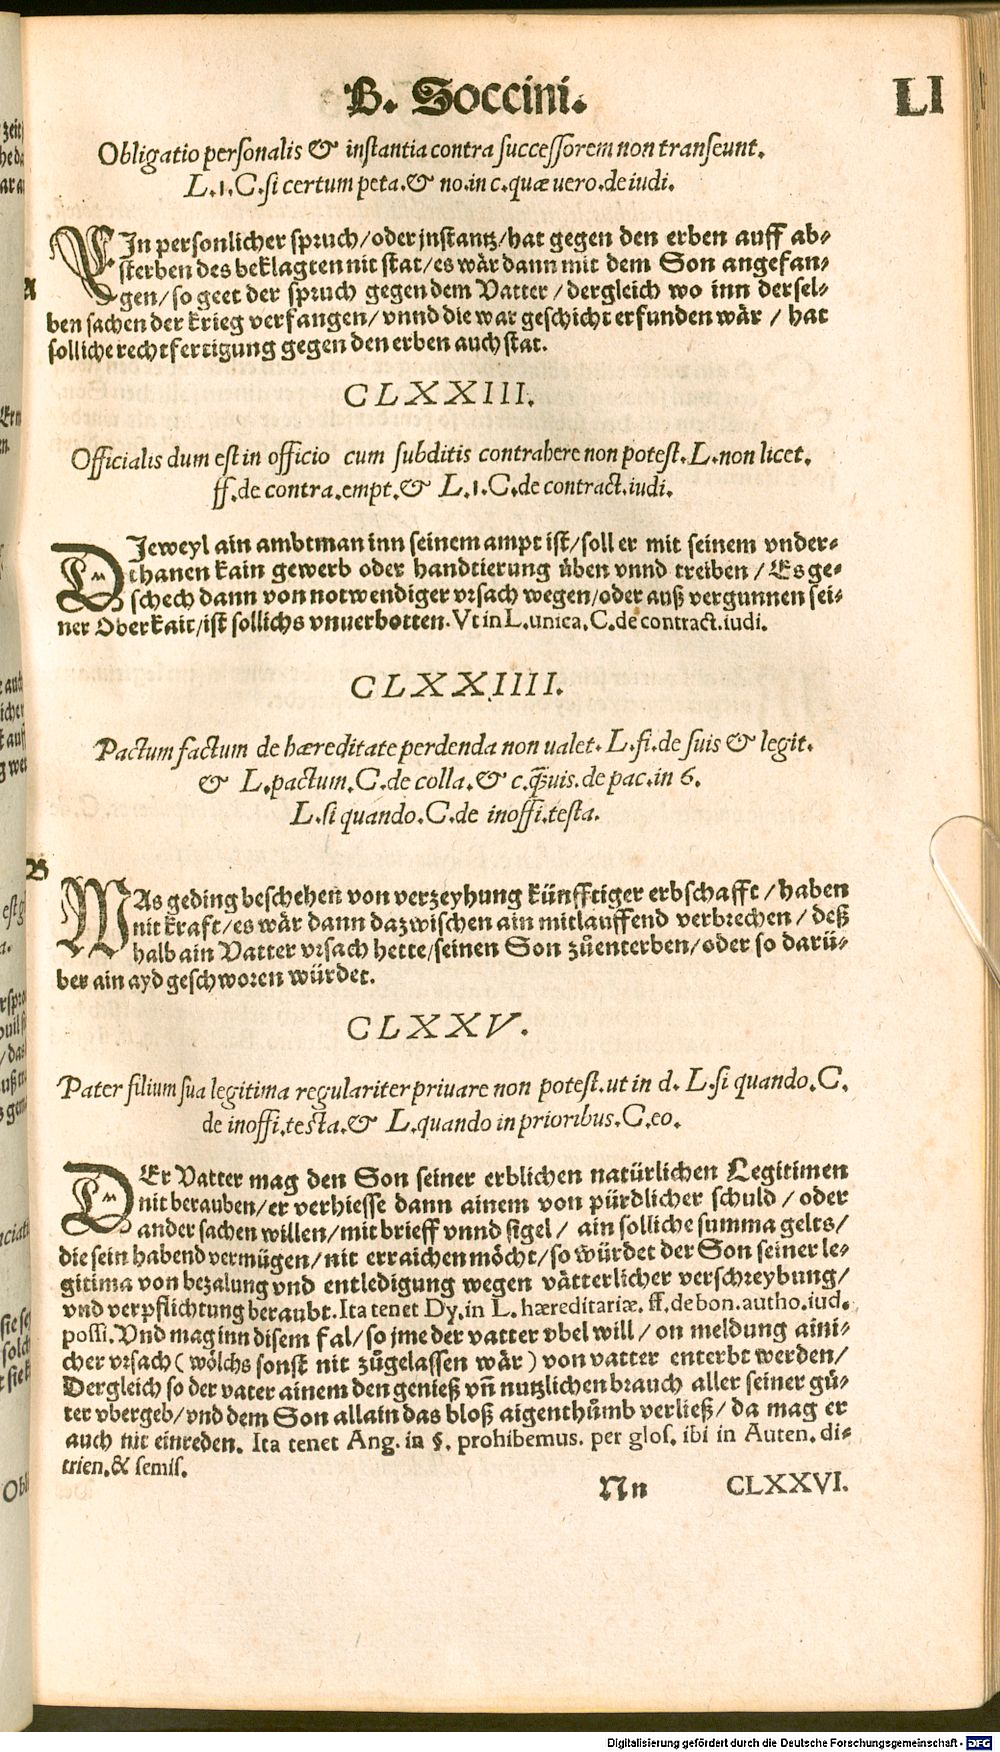 B. Soccini.
LI
Obligatio personalis & instantia contra successorem non transeunt.
L.1.C.si certum peta.& no.in c.quæ uero.de iudi.
A
EIn personlicher spruch/oder jnstantz/hat gegen den erben auff ab-
sterben des beklagten nit stat/es wär dann mit dem Son angefan-
gen/so geet der spruch gegen dem Vatter/dergleich wo inn dersel-
ben sachen der krieg verfangen/vnnd die war geschicht erfunden wär/hat
solliche rechtfertigung gegen den erben auch stat.
CLXXIII.
Officialis dum est in officio cum subditis contrahere non potest.L.non licet.
ff.de contra.empt.& L.1.C.de contract.iudi.
DJeweyl ain ambtman inn seinem ampt ist/soll er mit seinem vnder-
thanen kain gewerb oder handtierung üben vnnd treiben/Es ge-
schech dann von notwendiger vrsach wegen/oder auß vergunnen sei-
ner Oberkait/ist sollichs vnuerbotten. Vt in L.unica.C.de contract.iudi.
CLXXIIII.
Pactum factum de hæreditate perdenda non ualet.L.fi.de suis & legit.
& L.pactum.C.de colla.& c.q̃uis.de pac.in 6.
L.si quando.C.de inoffi.testa.
B
WAs geding beschehen von verzeyhung künfftiger erbschafft/haben
nit kraft/es wär dann dazwischen ain mitlauffend verbrechen/deß
halb ain Vatter vrsach hette/seinen Son zůenterben/oder so darü-
ber ain ayd geschworen würdet.
CLXXV.
Pater filium sua legitima regulariter priuare non potest.ut in d.L.si quando.C.
de inoffi.testa.& L.quando in prioribus.C.eo.
DEr Vatter mag den Son seiner erblichen natürlichen Legitimen
nit berauben/er verhiesse dann ainem von pürdlicher schuld/oder
ander sachen willen/mit brieff vnnd sigel/ain solliche summa gelts/
die sein habend vermügen/nit erraichen möcht/so würdet der Son seiner le-
gitima von bezalung vnd entledigung wegen vätterlicher verschreybung/
vnd verpflichtung beraubt.Ita tenet Dy.in L.hæreditariæ.ff.de bon.autho.iud.
possi.Vnd mag inn disem fal/so jme der vatter vbel will/on meldung aini-
cher vrsach(wölchs sonst nit zůgelassen wär)von vatter enterbt werden/
Dergleich so der vater ainem den genieß vñ nutzlichen brauch aller seiner gů-
ter vbergeb/vnd dem Son allain das bloß aigenthůmb verließ/da mag er
auch nit einreden. Ita tenet Ang. in §. prohibemus. per glos. ibi in Auten. di-
trien.& semis.
Nn CLXXVI.
Digitalisierung gefördert durch die Deutsche Forschungsgemeinschaft - DFG